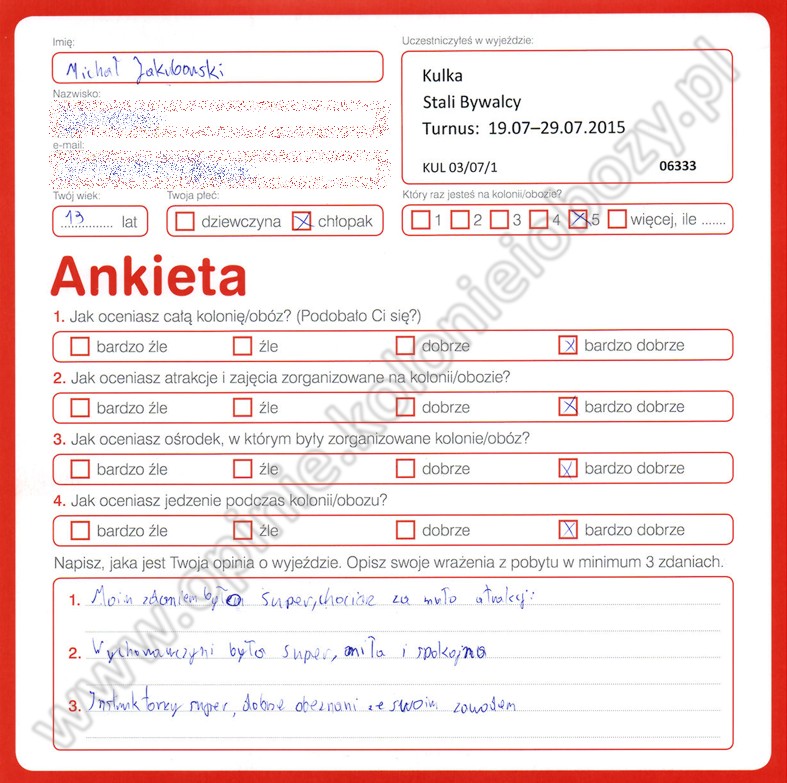 Imię:
Michał Jakubowski
Nazwisko:
e-mail:
Twój wiek:
13 lat
Twoja płeć:
dziewczyna chłopak
Uczestniczyłeś w wyjeździe:
Kulka
Stali Bywalcy
Turnus: 19.07–29.07.2015
KUL 03/07/1 06333
Który raz jesteś na kolonii/obozie?
1 2 3 4 5 więcej, ile .......
Ankieta
1. Jak oceniasz całą kolonię/obóz? (Podobało Ci się?)
bardzo źle źle dobrze bardzo dobrze
2. Jak oceniasz atrakcje i zajęcia zorganizowane na kolonii/obozie?
bardzo źle źle dobrze bardzo dobrze
3. Jak oceniasz ośrodek, w którym były zorganizowane kolonie/obóz?
bardzo źle źle dobrze bardzo dobrze
4. Jak oceniasz jedzenie podczas kolonii/obozu?
bardzo źle źle dobrze bardzo dobrze
Napisz, jaka jest Twoja opinia o wyjeździe. Opisz swoje wrażenia z pobytu w minimum 3 zdaniach.
1. Moim zdaniem było super, chociaż za mało atrakcji:
2. Wychowawczyni była super, miła i spokojna
3. Instruktorzy super, dobrze obeznani ze swoim zawodem
www.opinie.kolonieiobozy.pl